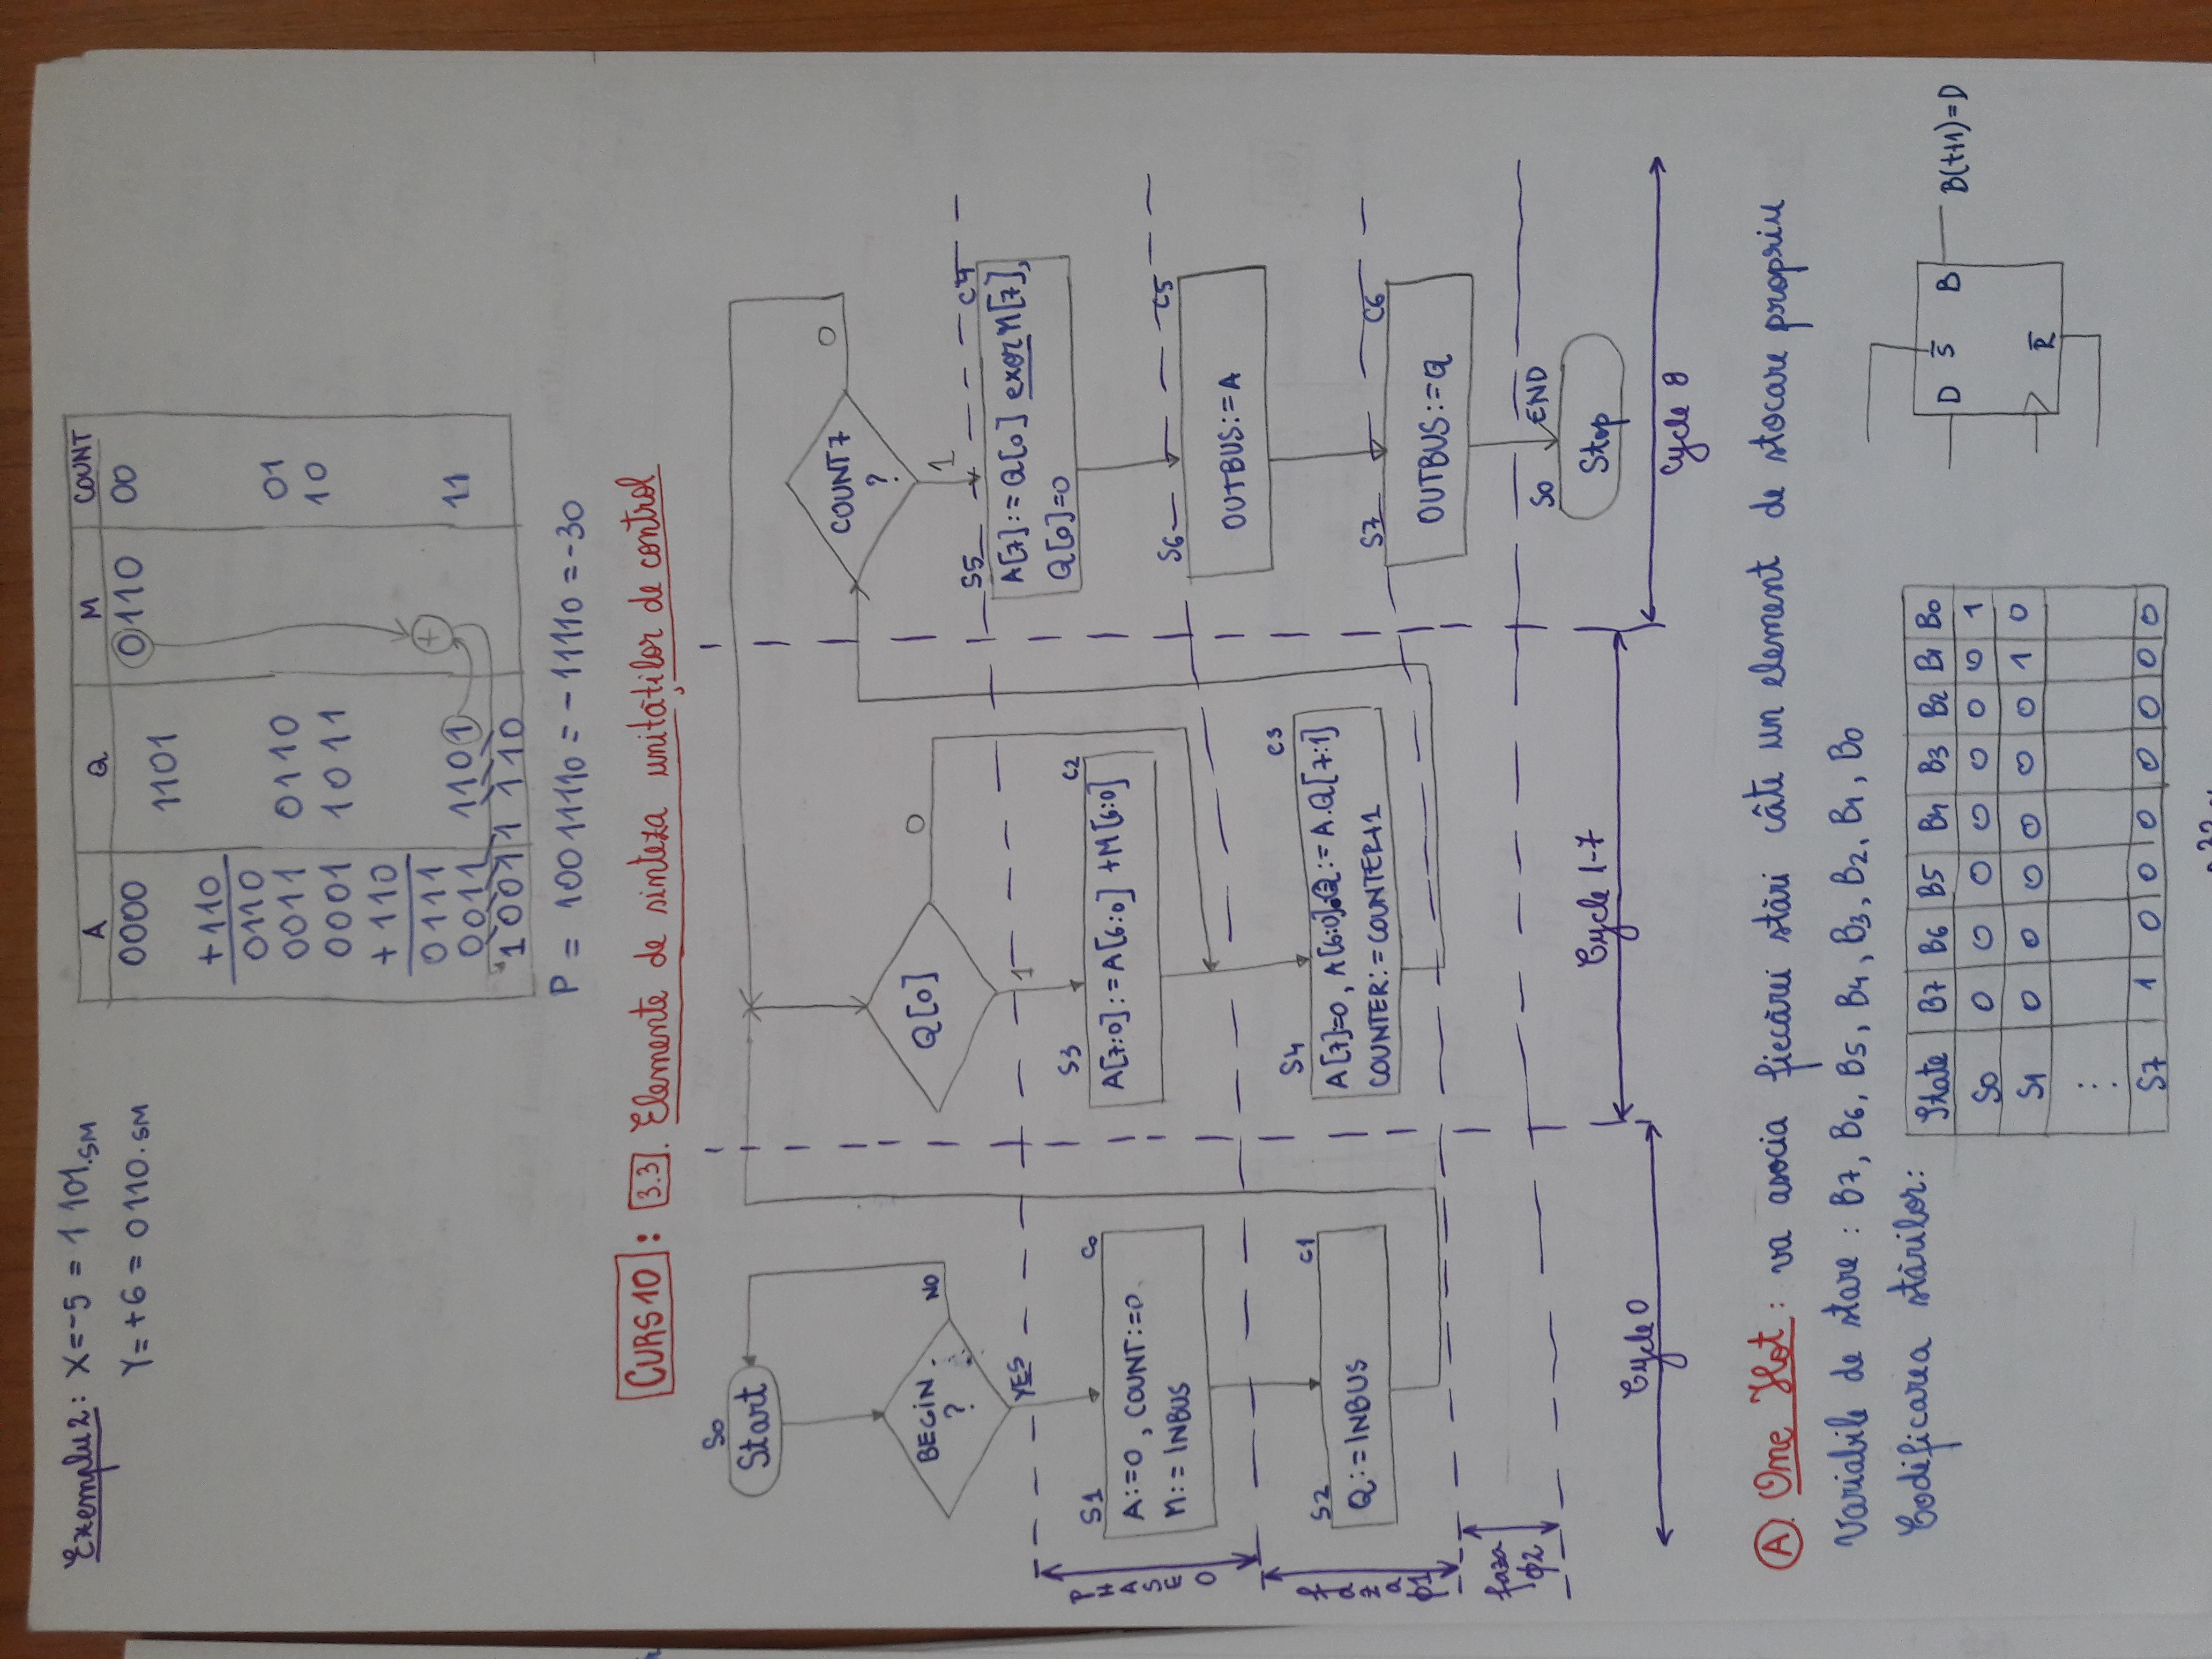 Exemplu 2: X=-5 = 1 101.SM
Y=+6 = 0110.SM
A Q M COUNT
0000 0110 00
1101
+110
0110
0011 0110 01
0001 1011 10
+110
0111
0011 1101 11
+
10011 110
P = 10011110 = -11110 = -30
CURS 10 : 3.3. Elemente de sinteza unităților de control
S0
Start
BEGIN
?
NO
YES
S1 C0
A:=0, COUNT:=0
M:=INBUS
S2 C1
Q:=INBUS
PHASE 0
faza ϕ1
faza
ϕ2
Q[0]
0
1
S3 C2
A[7:0]:=A[6:0] +M[6:0]
S4 C3
A[7]=0, A[6:0].Q:=A.Q[7:1]
COUNTER:=COUNTER+1
COUNT7
?
0
1
S5 C4
A[7]:=Q[0] exor M[7],
Q[0]=0
S6 C5
OUTBUS:=A
S7 C6
OUTBUS:=Q
S0 END
Stop
Cycle 0
Cycle 1-7
Cycle 8
A. One Hot: va asocia fiecărei stări câte un element de stocare propriu
Variabile de stare: B7, B6, B5, B4, B3, B2, B1, B0
Codificarea stărilor:
State B7 B6 B5 B4 B3 B2 B1 B0
S0 0 0 0 0 0 0 0 1
S1 0 0 0 0 0 0 1 0
:
:
S7 1 0 0 0 0 0 0 0
D S̅ B B(t+1)=D
R̅